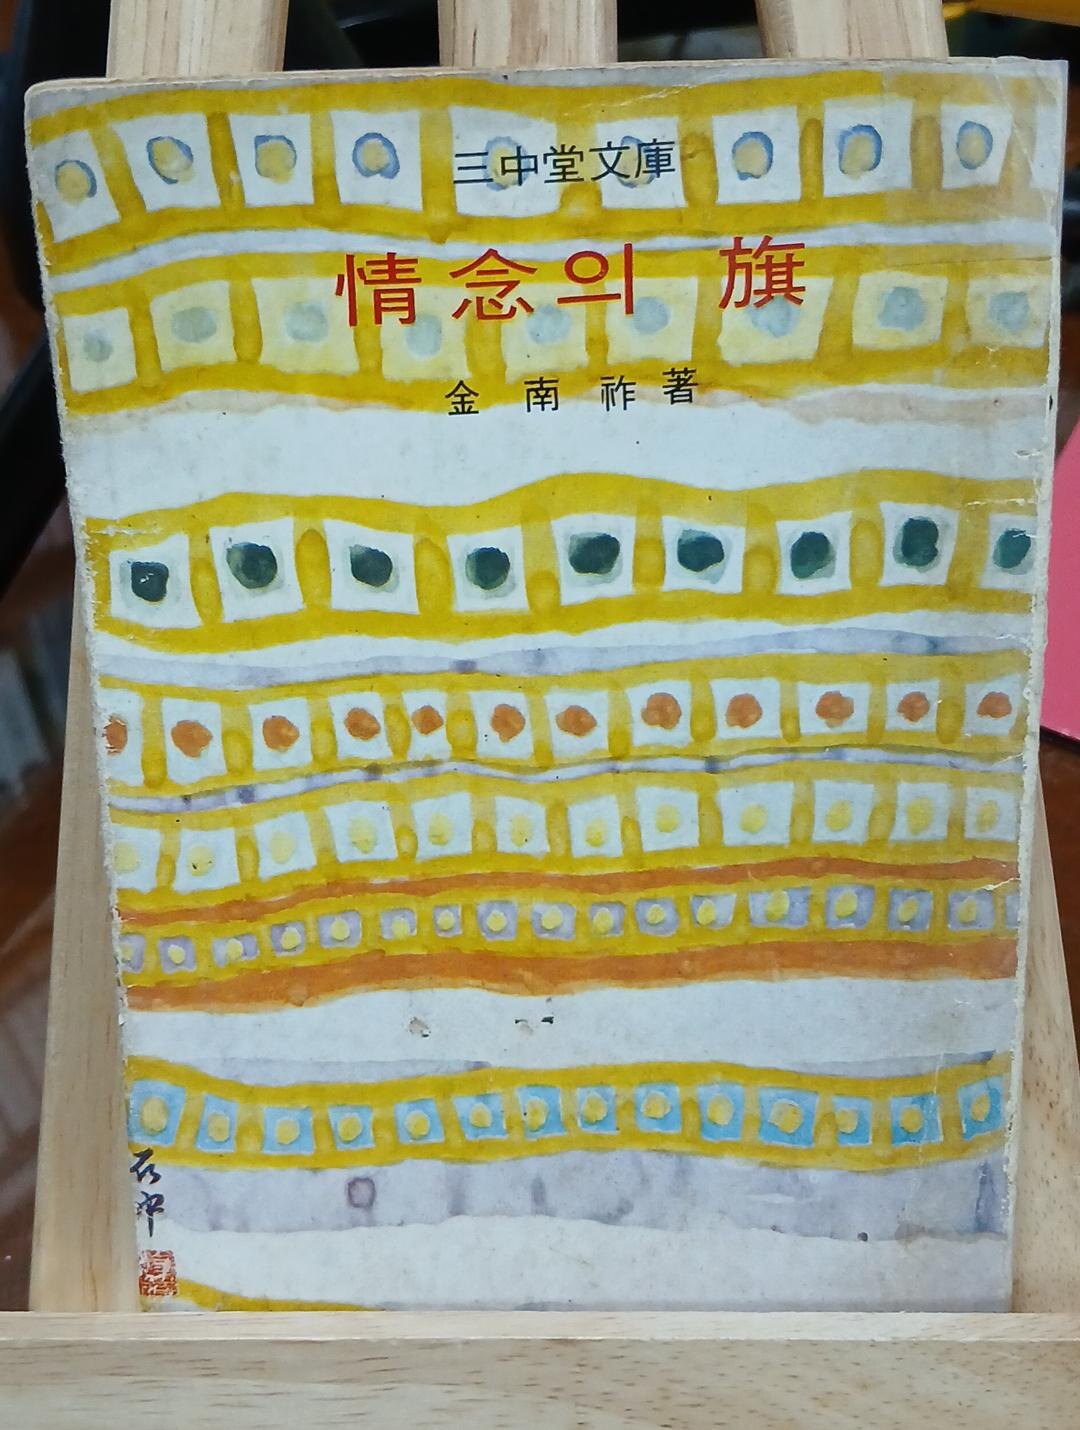 三中堂文庫
情念의 旗
金南祚 著